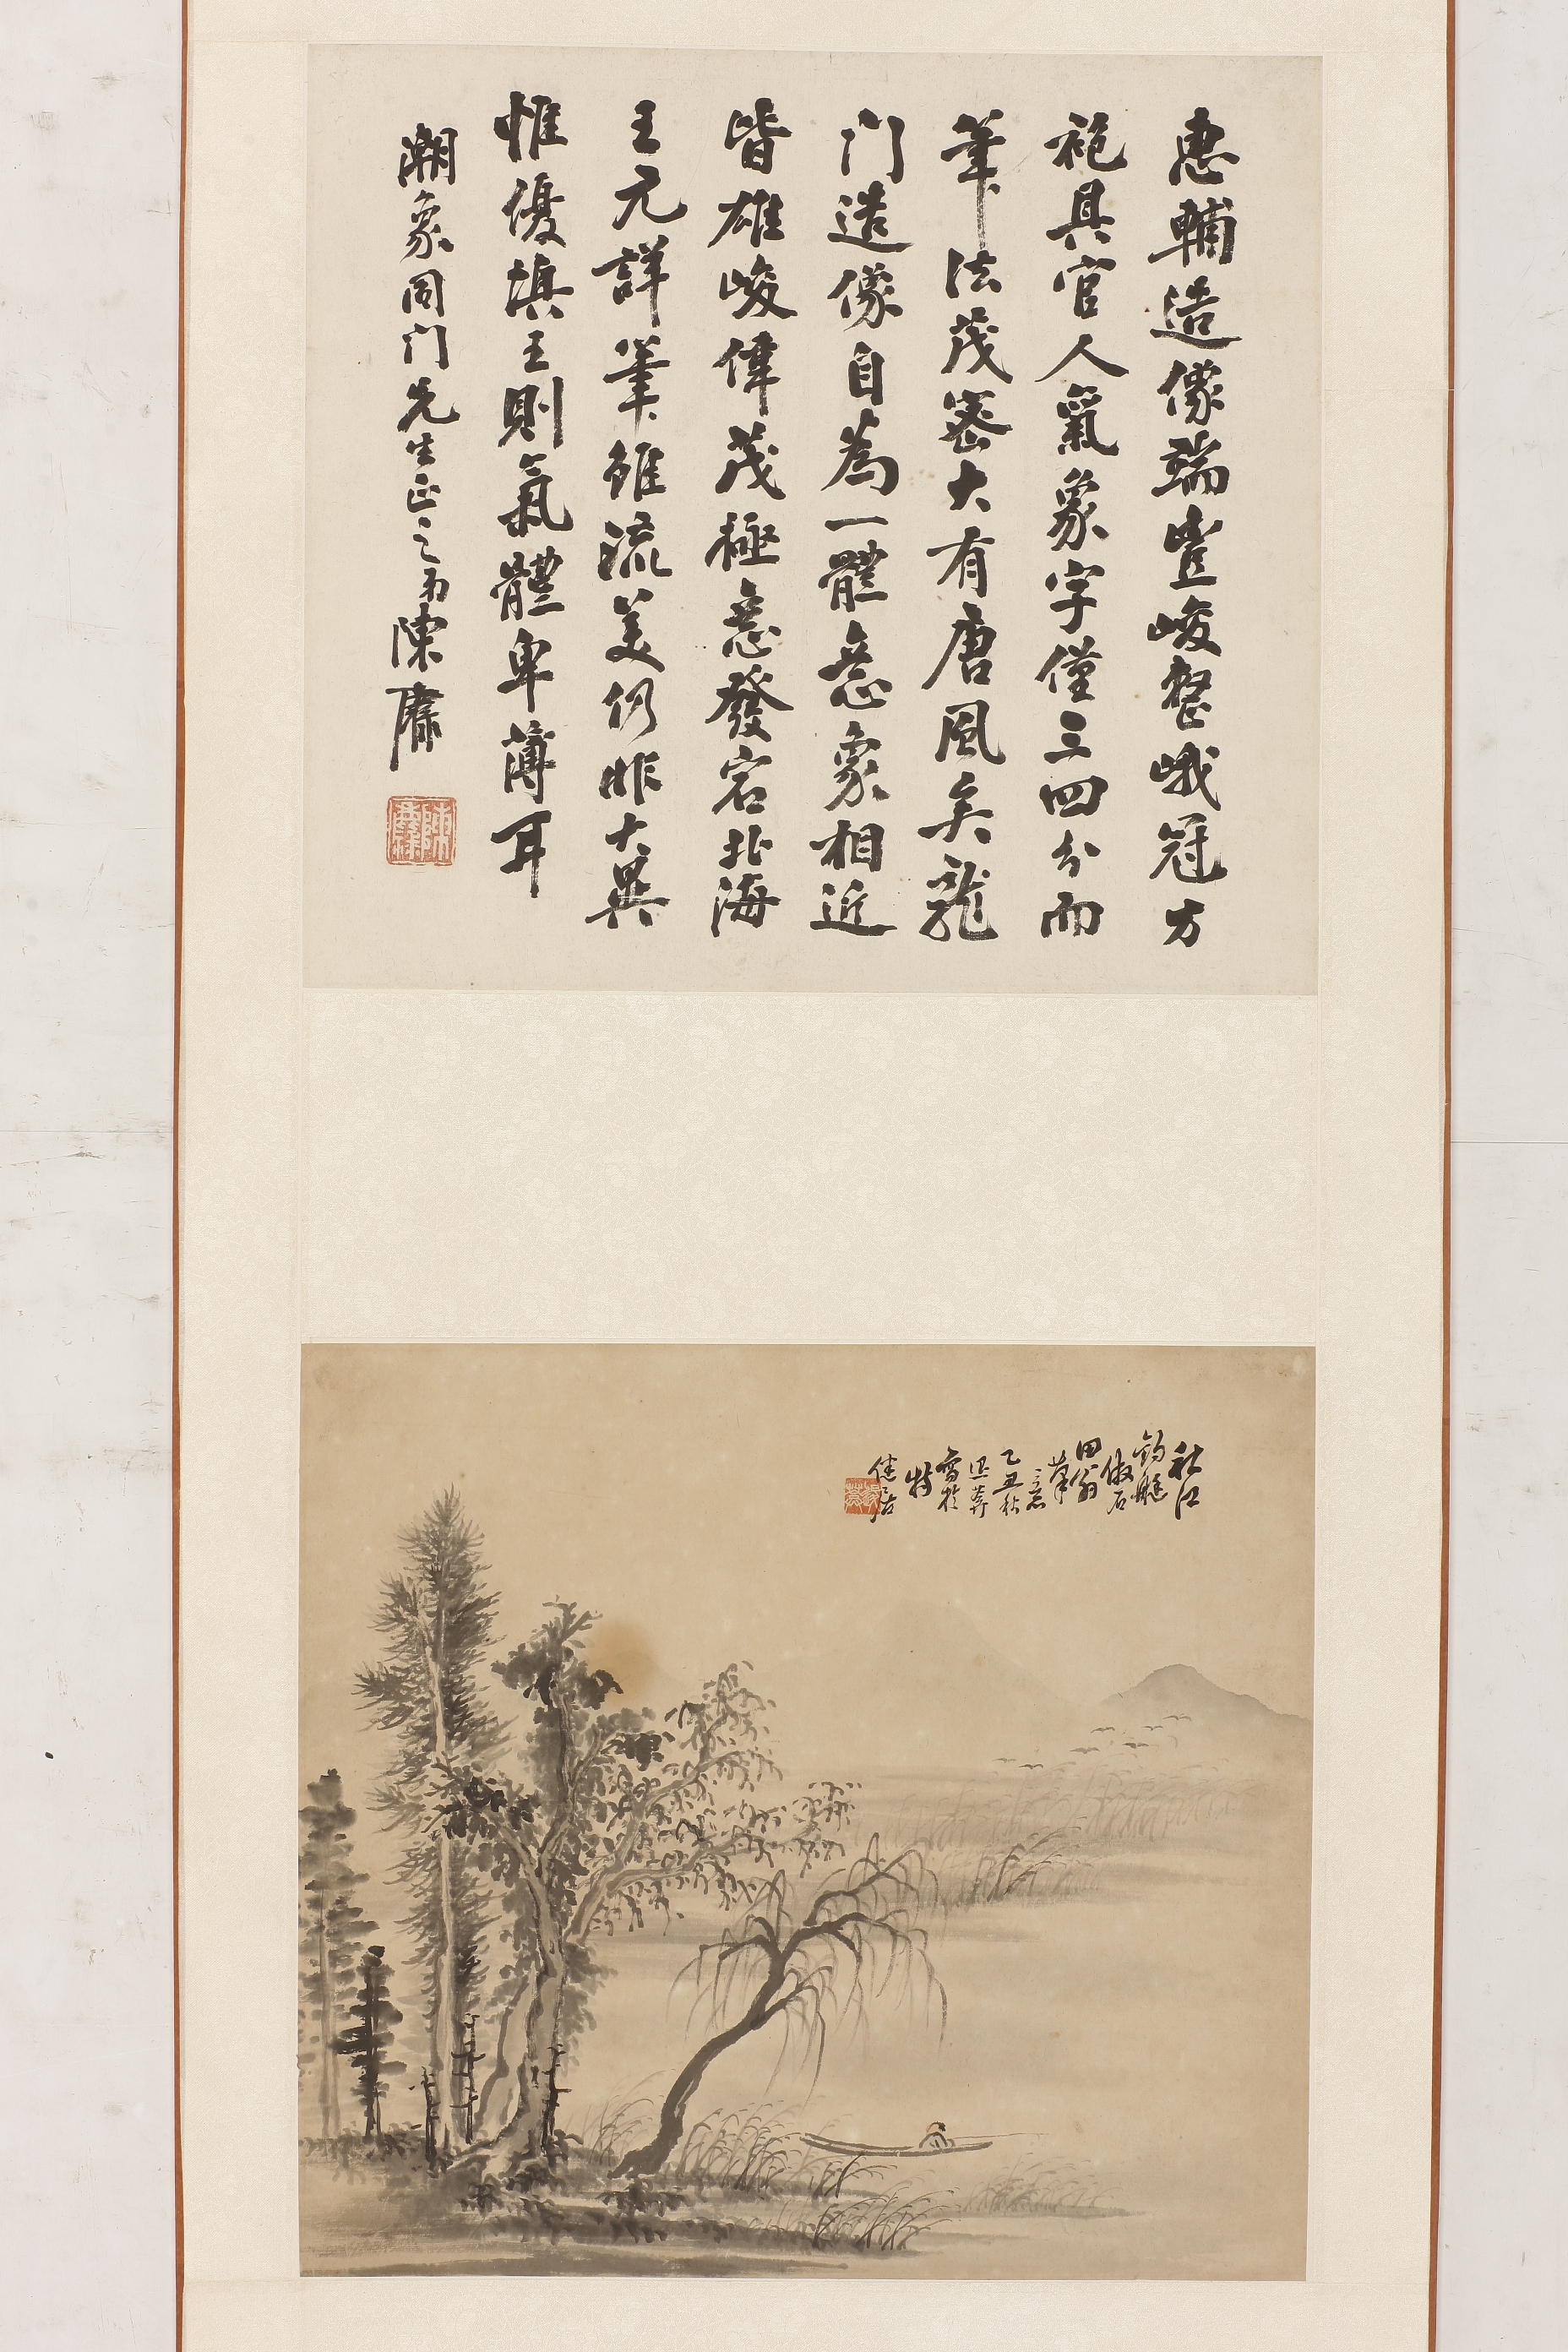 惠輔造像端豐峻整峨冠方
袍具官人氣象字僅三四分而
筆法茂密大有唐風矣龍
门造像自為一體意象相近
皆雄峻偉茂極意發宕北海
王元詳筆雖流美仍非大異
惟優填王則氣體卑薄耳
潮象同门先生正之弟陳
秋江
釣艇
倣石
田翁
筆
之意
乙丑秋
思莽
寫於
特
健